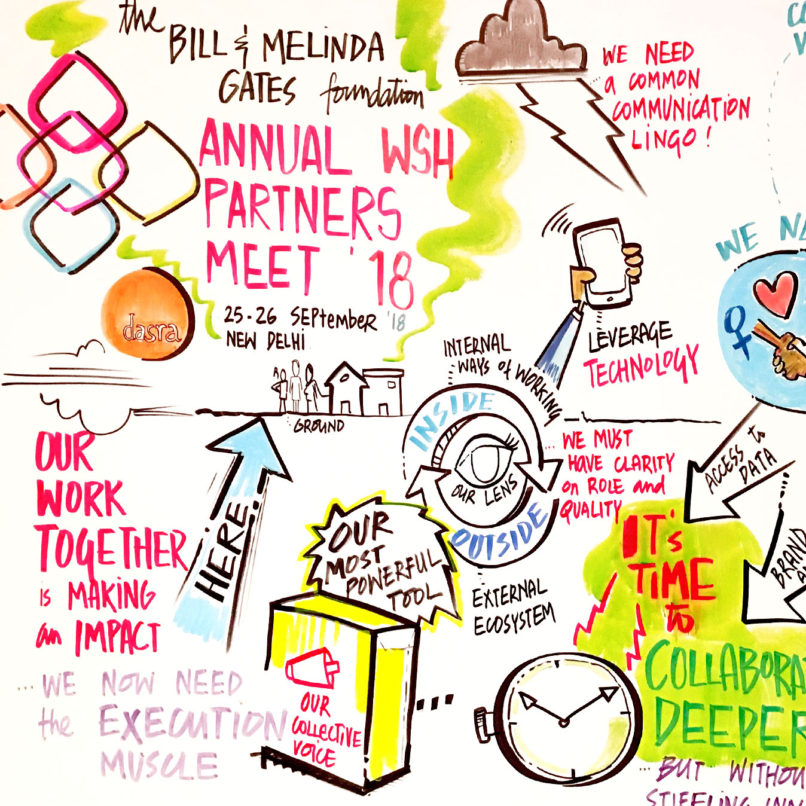 the
BILL & MELINDA
GATES foundation
ANNUAL WSH
PARTNERS
MEET '18
25-26 September '18
NEW DELHI
dasra
WE NEED
a COMMON
COMMUNICATION
LINGO!
LEVERAGE
TECHNOLOGY
INTERNAL
WAYS of WORKING
INSIDE
OUR LENS
OUTSIDE
EXTERNAL
ECOSYSTEM
WE MUST
HAVE CLARITY
on ROLE and
QUALITY
GROUND
HERE!
OUR
WORK
TOGETHER
is MAKING
an IMPACT
...WE NOW NEED
the EXECUTION
MUSCLE
OUR
MOST
POWERFUL
TOOL
OUR
COLLECTIVE
VOICE
...
WE
ACCESS to
DATA
BRAND
IT's
TIME
to
COLLABORA
DEEPER
...BUT WITHOU
STIFLING INN